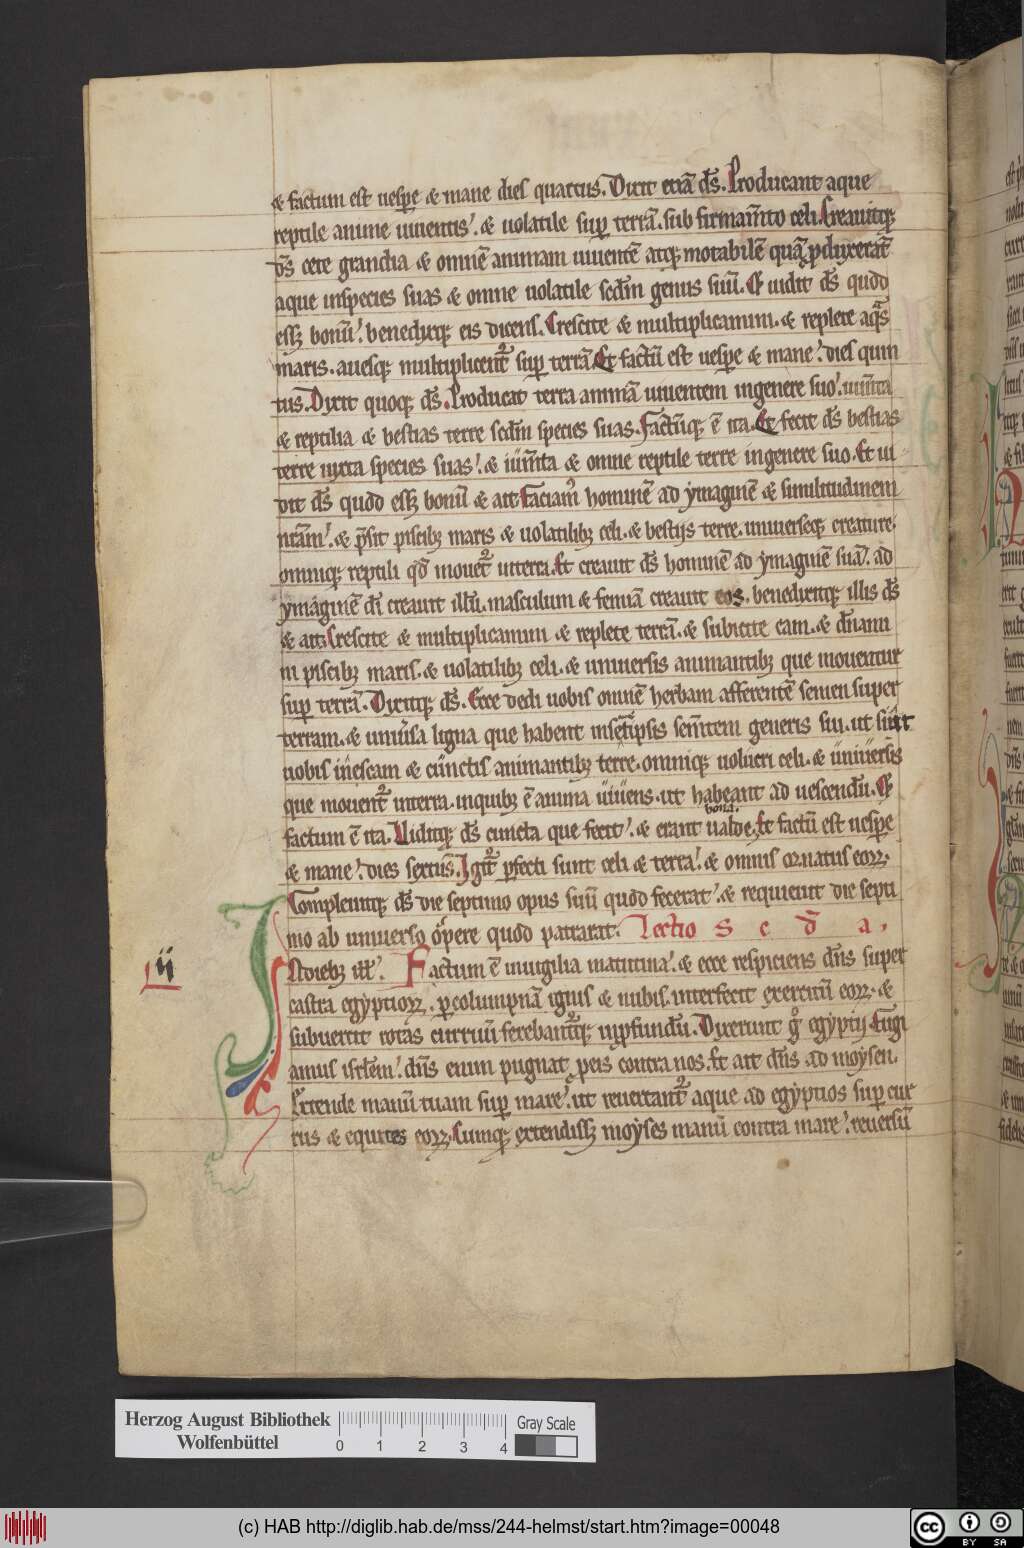 & factum est uespe & mane dies quartus. Dixit etiā ds̄. Producant aque
reptile anime uiuentis. & uolatile sup terrā. sub firmam̄to celi. Creauitq;
ds̄ cete grandia & omnē animam uiuentē atq; motabilē quā pduxerāt
aque inspecies suas & omne uolatile scdm̄ genus suū. Et uidit ds̄ quod
ess& bonū. benedixitq; eis dicens. Crescite & multiplicamini. & replete aqas
maris. auesq; multiplicent̄ sup terrā. Et factū est uespe & mane. dies quin
tus. Dixit quoq; ds̄. Producat terra animā uiuentem ingenere suo. iumta
& reptilia & bestias terre scdm̄ species suas. Factūq; ē ita. Et fecit ds̄ bestias
terre iuxta species suas. & iumta & omne reptile terre ingenere suo. Et ui
dit ds̄ quod ess& bonū & ait. Faciam' hominē ad ymaginē & similitudinem
nrām. & psit piscib; maris & uolatilib; celi. & bestijs terre. uniuerseq; creature.
omniq; reptili qd mouet̄ interra. Et creauit ds̄ hominē ad ymaginē suā. ad
ymaginē di creauit illū. masculum & feminā creauit eos. benedixitq; illis ds̄
& ait. Crescite & multiplicamini & replete terrā. & subicite eam. & dn̄ami
ni piscib; maris. & uolatilib; celi. & uniuersis animantib; que mouentur
sup terrā. Dixitq; ds̄. Ecce dedi uobis omnē herbam afferentē semen super
terram. & uniu'sa ligna que habent insetipsis sem̄tem generis sui. ut sint
uobis inescam & cunctis animantib; terre. omniq; uolucri celi. & uniuersis
que mouent̄ interra. inquib; ē anima uiuens. ut habeant ad uescendū. Et
bona.
factum ē ita. Uiditq; ds̄ cuncta que fecit. & erant ualde. Et factū est uespe
& mane. dies sextus. Igit̄ pfecti sunt celi & terra. & omnis ornatus eoꝝ.
Compleuitq; ds̄ die septimo opus suū quod fecerat. & requieuit die septi
mo ab uniuerso opere quod patrarat. Lectio s c d a.
ij
In dieb; ill'. Factum ē inuigilia matutina. & ecce respiciens dn̄s super
castra egyptioꝝ. p columpnā ignis & nubis. interfecit exercitū eoꝝ. &
subuertit rotas curruū ferebant̄q; inpfundū. Dixerunt g° egyptij. Fugi
amus isrl̄em. dn̄s enim pugnat peis contra nos. Et ait dn̄s ad moysen.
Extende manū tuam sup mare. ut reuertant̄ aque ad egyptios sup cur
rus & equites eoꝝ. Cumq; extendiss& moyses manū contra mare. reuersū
Herzog August Bibliothek
Wolfenbüttel
0 1 2 3 4
Gray Scale
(c) HAB http://diglib.hab.de/mss/244-helmst/start.htm?image=00048
cc BY SA